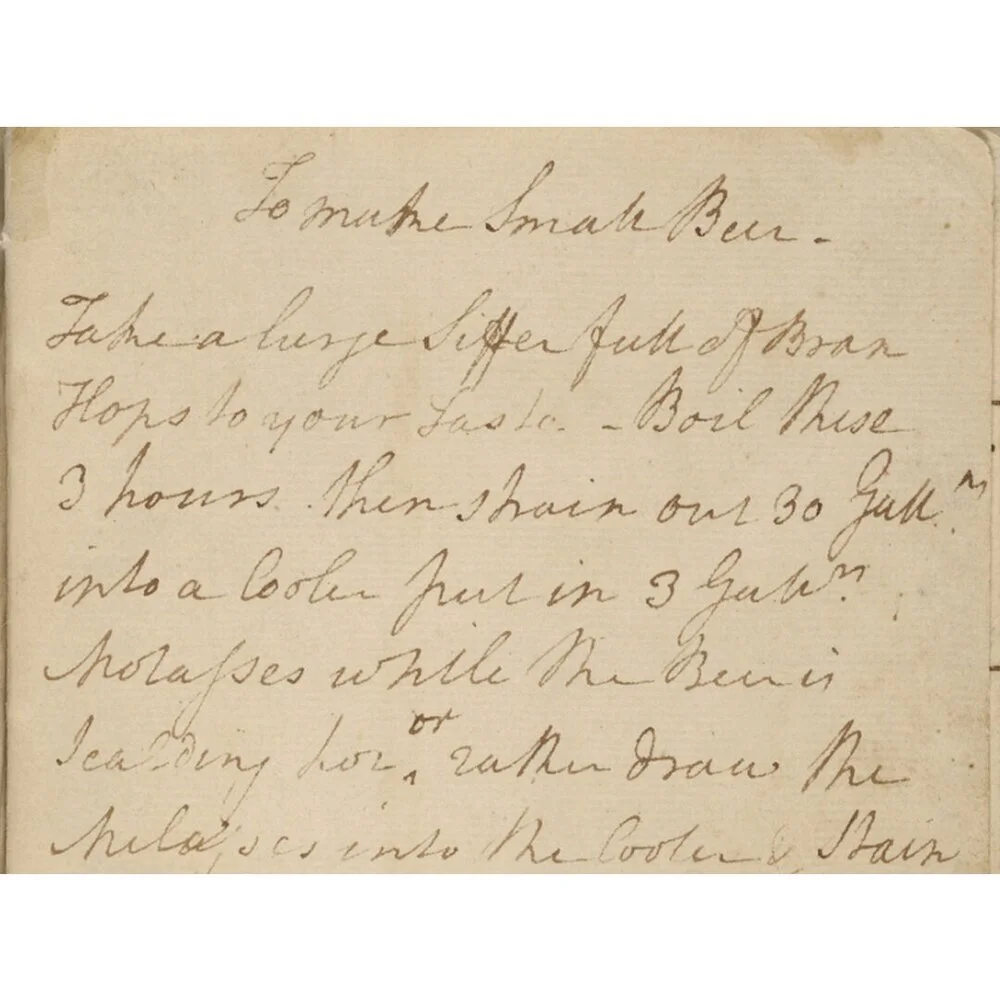 To make Small Beer -
Take a large Siffer full of Bran
Hops to your Taste. - Boil these
3 hours. then strain out 30 Gall.ns
into a Cooler put in 3 Gall.n
Molasses while the Beer is
Scalding hot or rather draw the
Melasses into the Cooler & Stain